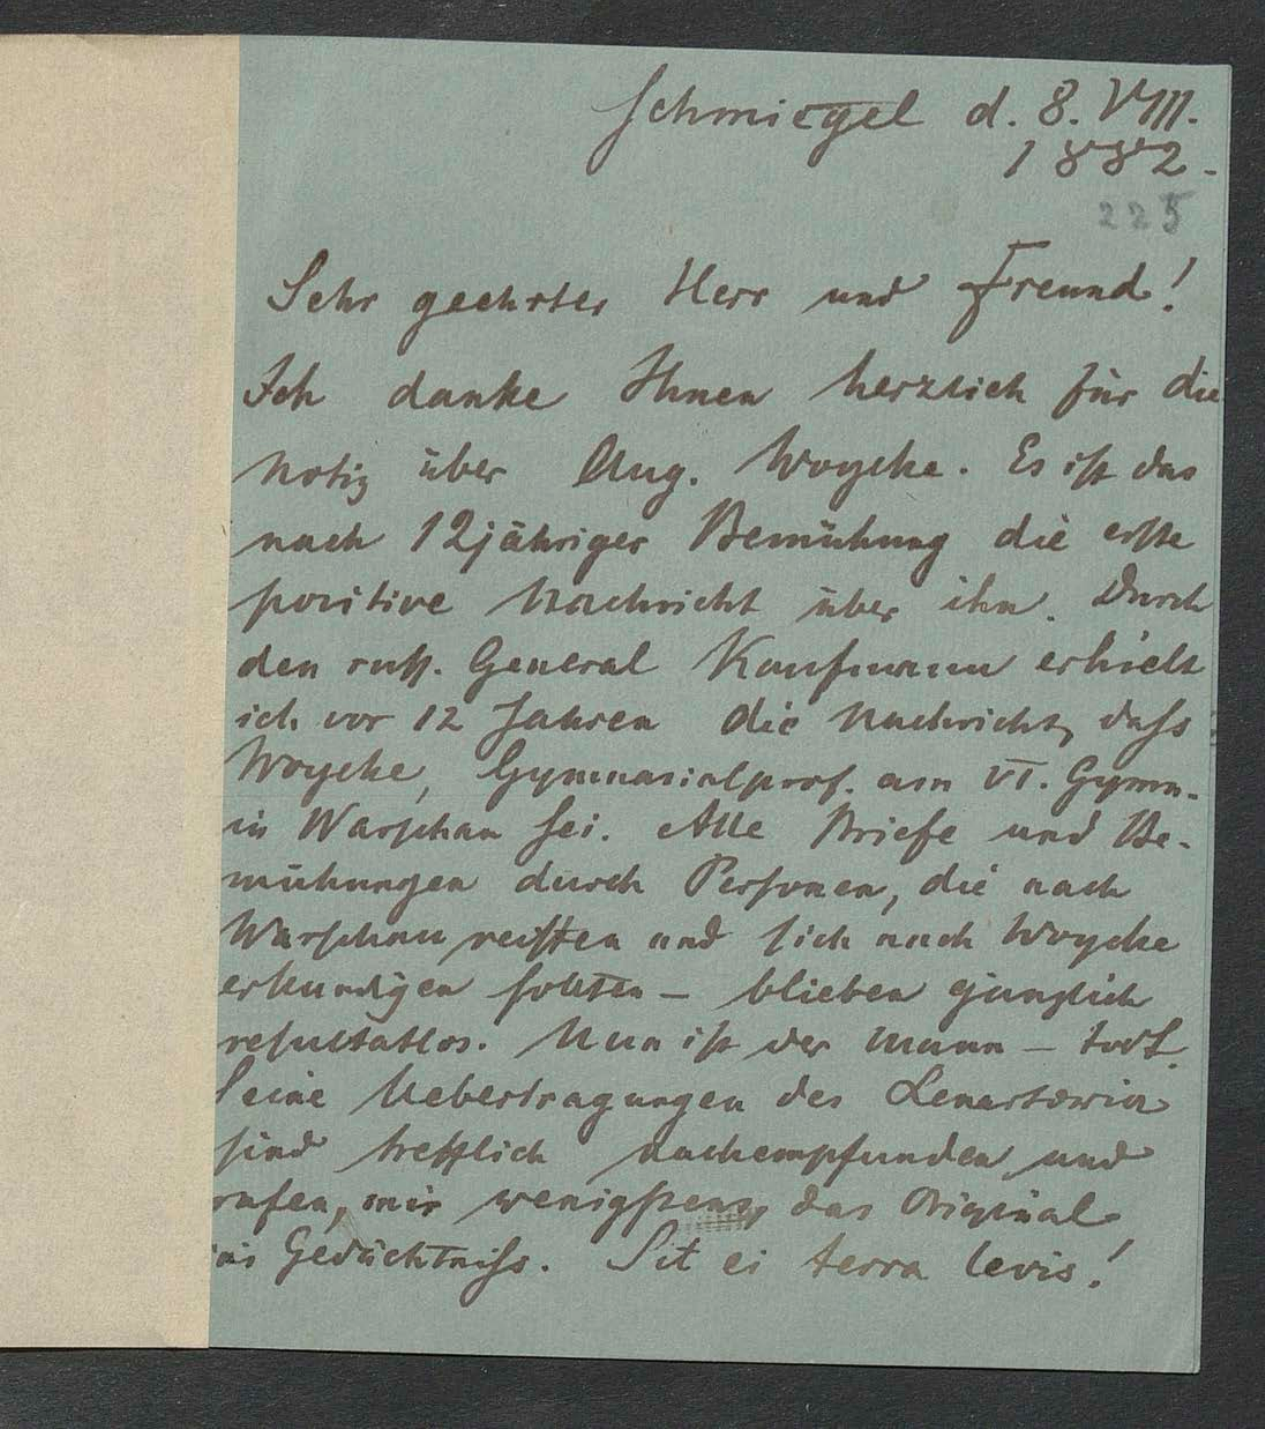 Schmiegel d. 8. VIII.
1882.
225
Sehr geehrter Herr und Freund!
Ich danke Ihnen herzlich für die
Notiz über Aug. Woycke. Es ist das
nach 12jähriger Bemühung die erste
positive Nachricht über ihn. Durch
den russ. General Kaufmann erhielt
ich vor 12 Jahren die Nachricht, dass
Woycke, Gymnasialprof. am VI. Gymn.
in Warschau sei. Alle Briefe und Be-
mühungen durch Personen, die nach
Warschau reisten und sich nach Woycke
erkundigen sollten – blieben gänzlich
resultatlos. Nun ist der Mann – todt.
Seine Uebertragungen des Lenartowicz
sind trefflich nachempfunden und
rufen, mir wenigstens, das Original
ins Gedächtniss. Sit ei terra levis!